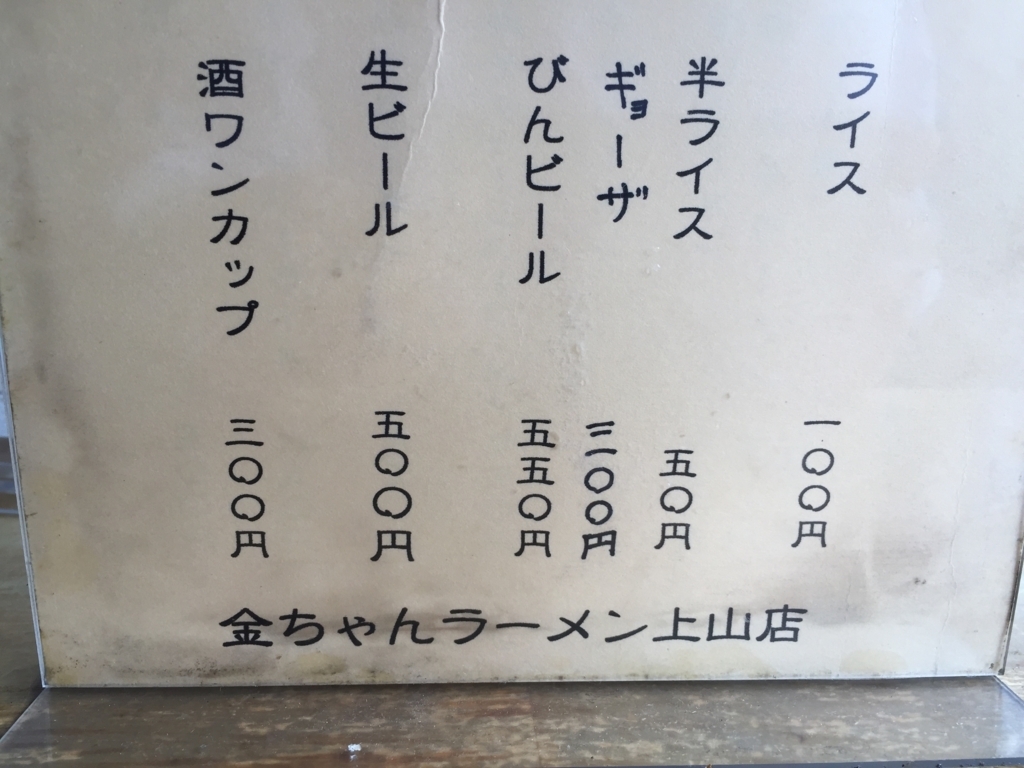 ライス 一〇〇円
半ライス 五〇円
ギョーザ 三〇〇円
びんビール 五五〇円
生ビール 五〇〇円
酒ワンカップ 三〇〇円
金ちゃんラーメン上山店